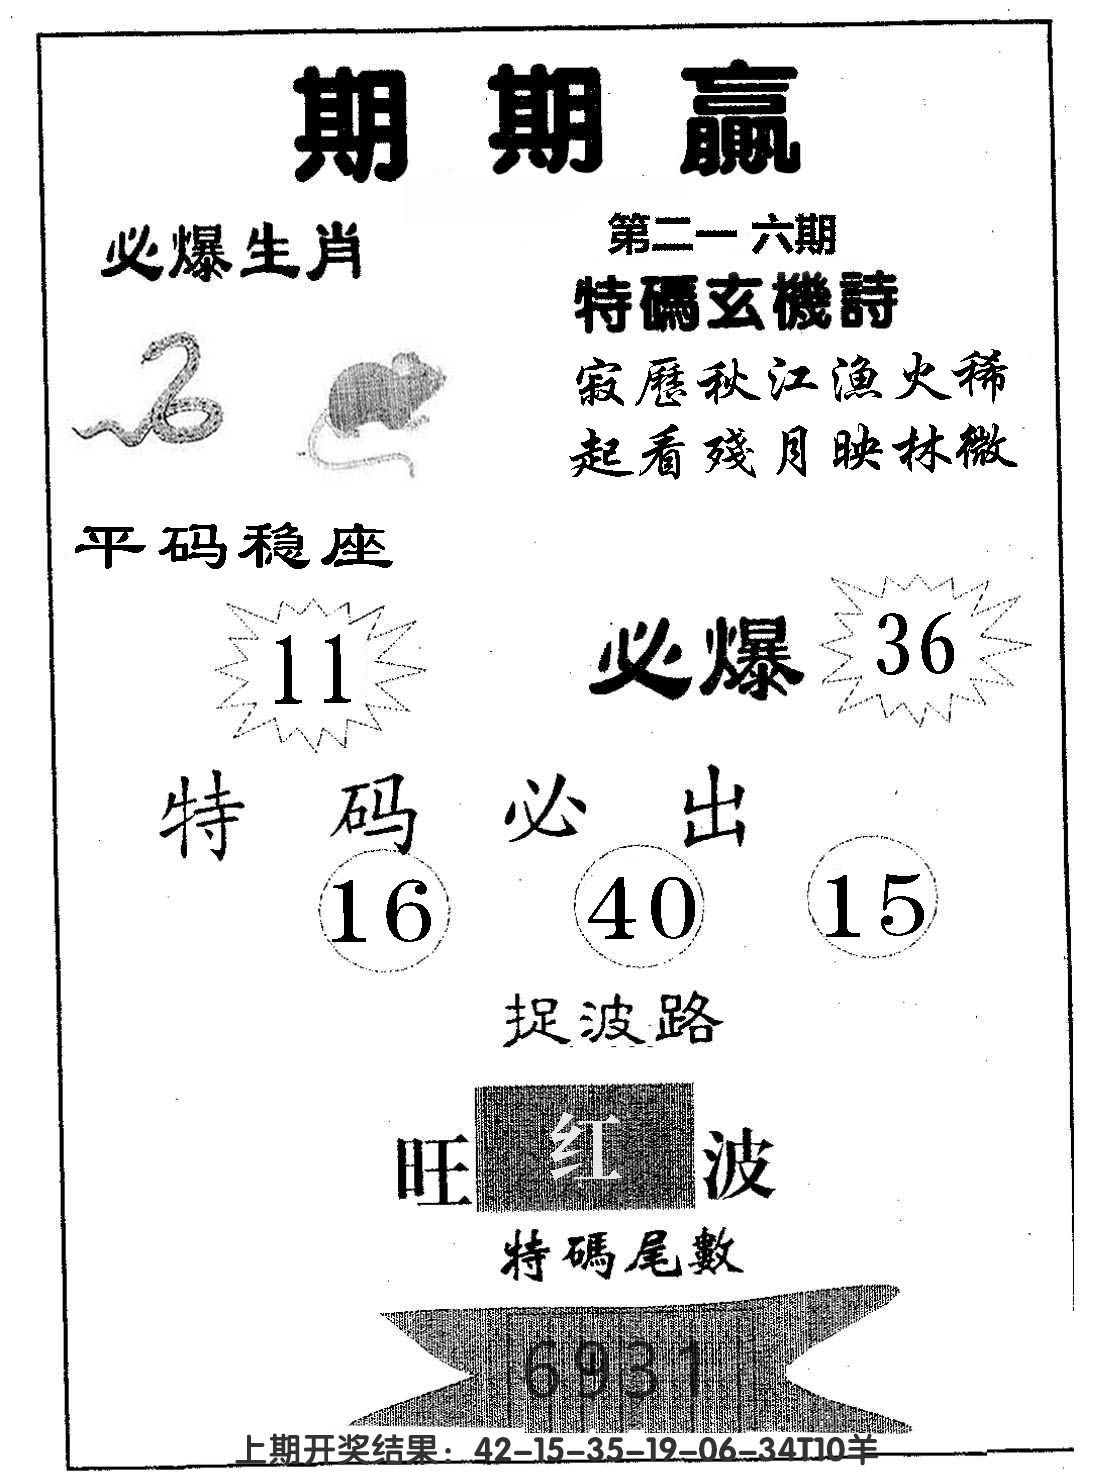 期期赢
必爆生肖
第二一六期
特碼玄機詩
寂歷秋江漁火稀
起看殘月映林微
平码稳座
11
必爆 36
特码必出
16 40 15
捉波路
旺红波
特碼尾數
6931
上期开奖结果：42-15-35-19-06-34T10羊